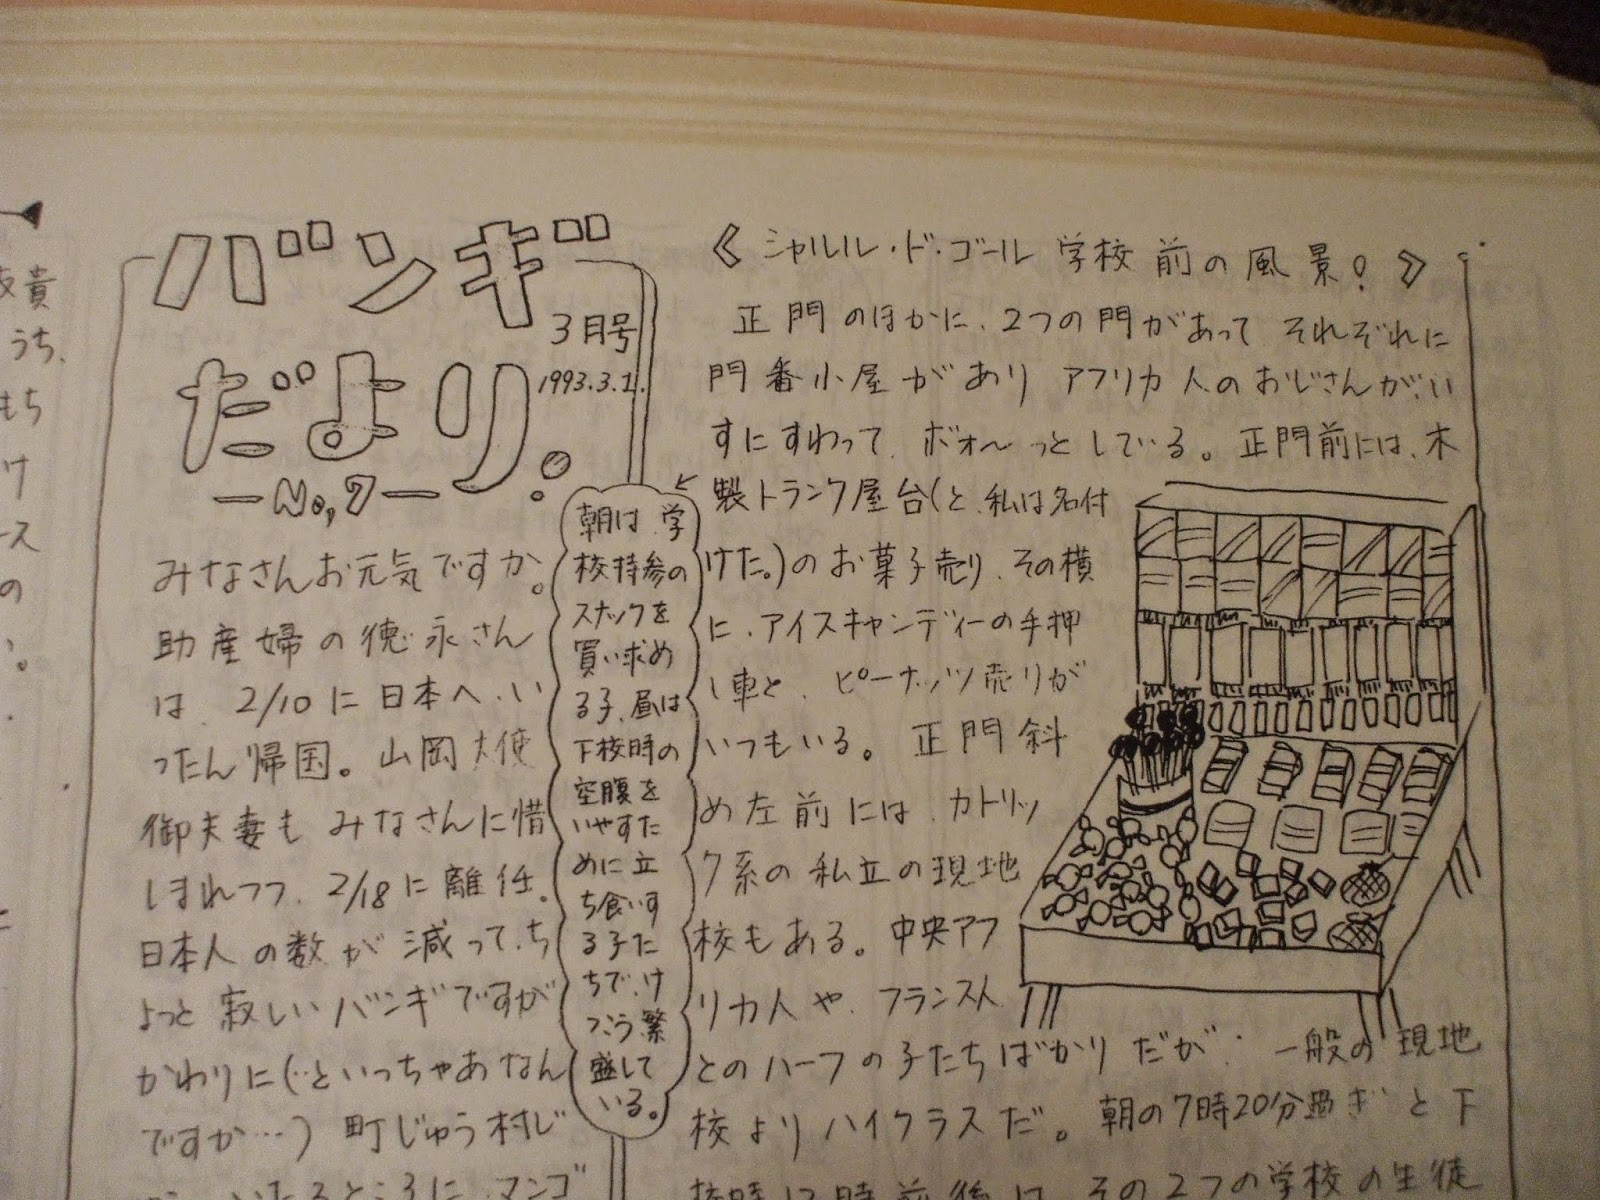 バンギ
だより。
3月号
1993.3.1.
－No,7－
みなさんお元気ですか。
助産婦の徳永さん
は、2/10に日本へ、い
ったん帰国。山岡大使
御夫妻もみなさんに惜
しまれつつ、2/18に離任。
日本人の数が減って、ち
ょっと寂しいバンギですが
かわりに(…といっちゃあなん
ですか…)町じゅう村じ
いたるところに、マンゴ
朝は、学
校持参の
スナックを
買い求め
る子、昼は
下校時の
空腹を
いやすた
めに立
ち食いす
る子た
ちで、け
っこう繁
盛して
いる。
《シャルル・ド・ゴール学校前の風景!》
正門のほかに、2つの門があってそれぞれに
門番小屋があり アフリカ人のおじさんが、い
すにすわって、ボォ〜っとしている。正門前には、木
製トランク屋台(と、私は名付
けた。)のお菓子売り、その横
に、アイスキャンディーの手押
し車と、ピーナッツ売りが
いつもいる。正門斜
め左前には、カトリッ
ク系の私立の現地
校もある。中央アフ
リカ人や、フランス人
とのハーフの子たちばかりだが、一般の現地
校よりハイクラスだ。朝の7時20分過ぎと下
校時12時前後は、その2つの学校の生徒
貴
うち、
もち
け
ース
の
。